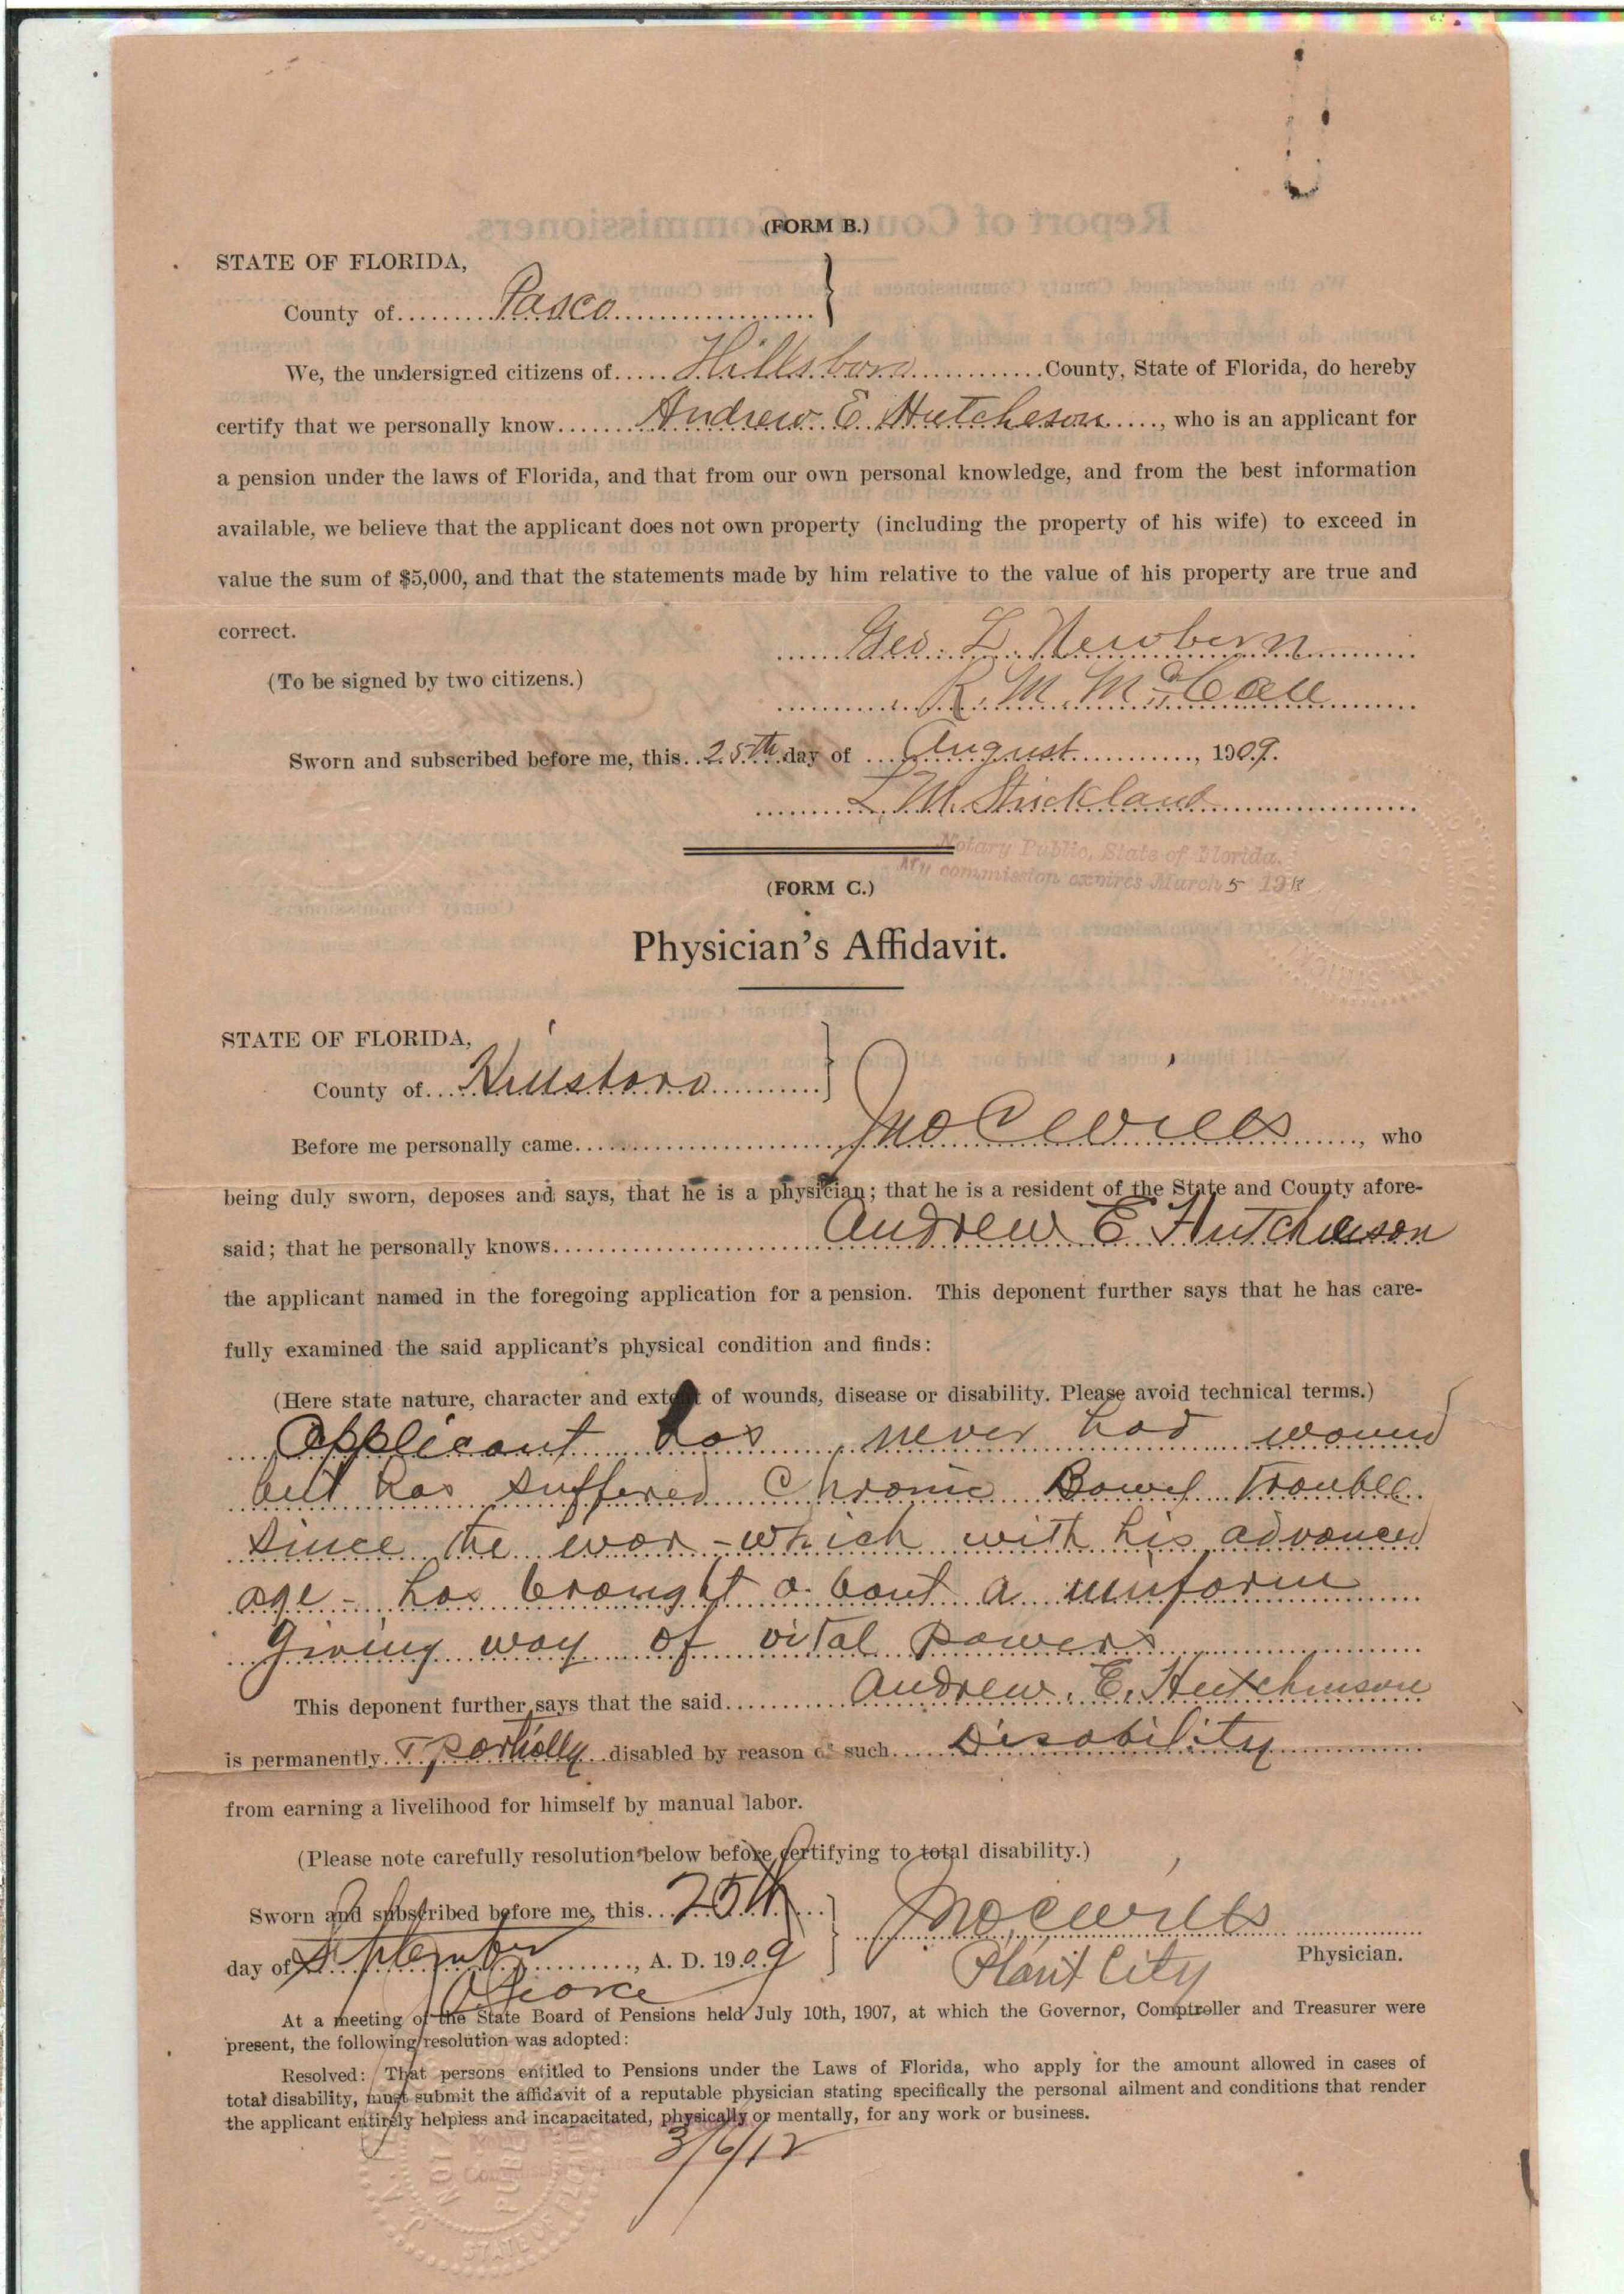 (FORM B.)
STATE OF FLORIDA,
County of Pasco
We, the undersigned citizens of Hillsboro County, State of Florida, do hereby
certify that we personally know Andrew E Hutcheson, who is an applicant for
a pension under the laws of Florida, and that from our own personal knowledge, and from the best information
available, we believe that the applicant does not own property (including the property of his wife) to exceed in
value the sum of $5,000, and that the statements made by him relative to the value of his property are true and
correct.
Geo. L. Newbern
(To be signed by two citizens.)
R. M. McCall
Sworn and subscribed before me, this 25th day of August, 1909.
L. M. Strickland
Notary Public, State of Florida.
My commission expires March 5 191
(FORM C.)
Physician's Affidavit.
STATE OF FLORIDA,
County of Hillsboro
Before me personally came Jno C Wills, who
being duly sworn, deposes and says, that he is a physician; that he is a resident of the State and County afore-
said; that he personally knows Andrew E Hutchinson
the applicant named in the foregoing application for a pension. This deponent further says that he has care-
fully examined the said applicant's physical condition and finds:
(Here state nature, character and extent of wounds, disease or disability. Please avoid technical terms.)
Applicant has never had wound
but has suffered Chronic Bowel Trouble
since the war - which with his advanced
age - has brought about a uniform
giving way of vital powers
This deponent further says that the said Andrew. E. Hutchinson
is permanently & partially disabled by reason of such Disability
from earning a livelihood for himself by manual labor.
(Please note carefully resolution below before certifying to total disability.)
Sworn and subscribed before me, this 25th
Jno C Wills
day of September, A. D. 1909
Physician.
Plant City
At a meeting of the State Board of Pensions held July 10th, 1907, at which the Governor, Comptroller and Treasurer were
present, the following resolution was adopted:
Resolved: That persons entitled to Pensions under the Laws of Florida, who apply for the amount allowed in cases of
total disability, must submit the affidavit of a reputable physician stating specifically the personal ailment and conditions that render
the applicant entirely helpless and incapacitated, physically or mentally, for any work or business.
3/6/12